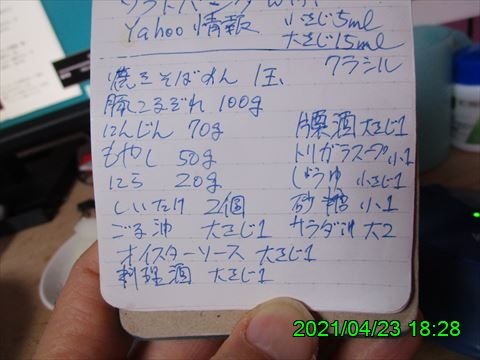 Yahoo情報 小さじ5ml
大さじ15ml
クラシル
焼きそばめん 1玉
豚こまぎれ 100g
にんじん 70g 片栗酒 大さじ1
もやし 50g トリガラスープ 小1
にら 20g しょうゆ 小さじ1
しいたけ 2個 砂糖 小1
ごま油 大さじ1 サラダ油 大2
オイスターソース 大さじ1
料理酒 大さじ1
2021/04/23 18:28